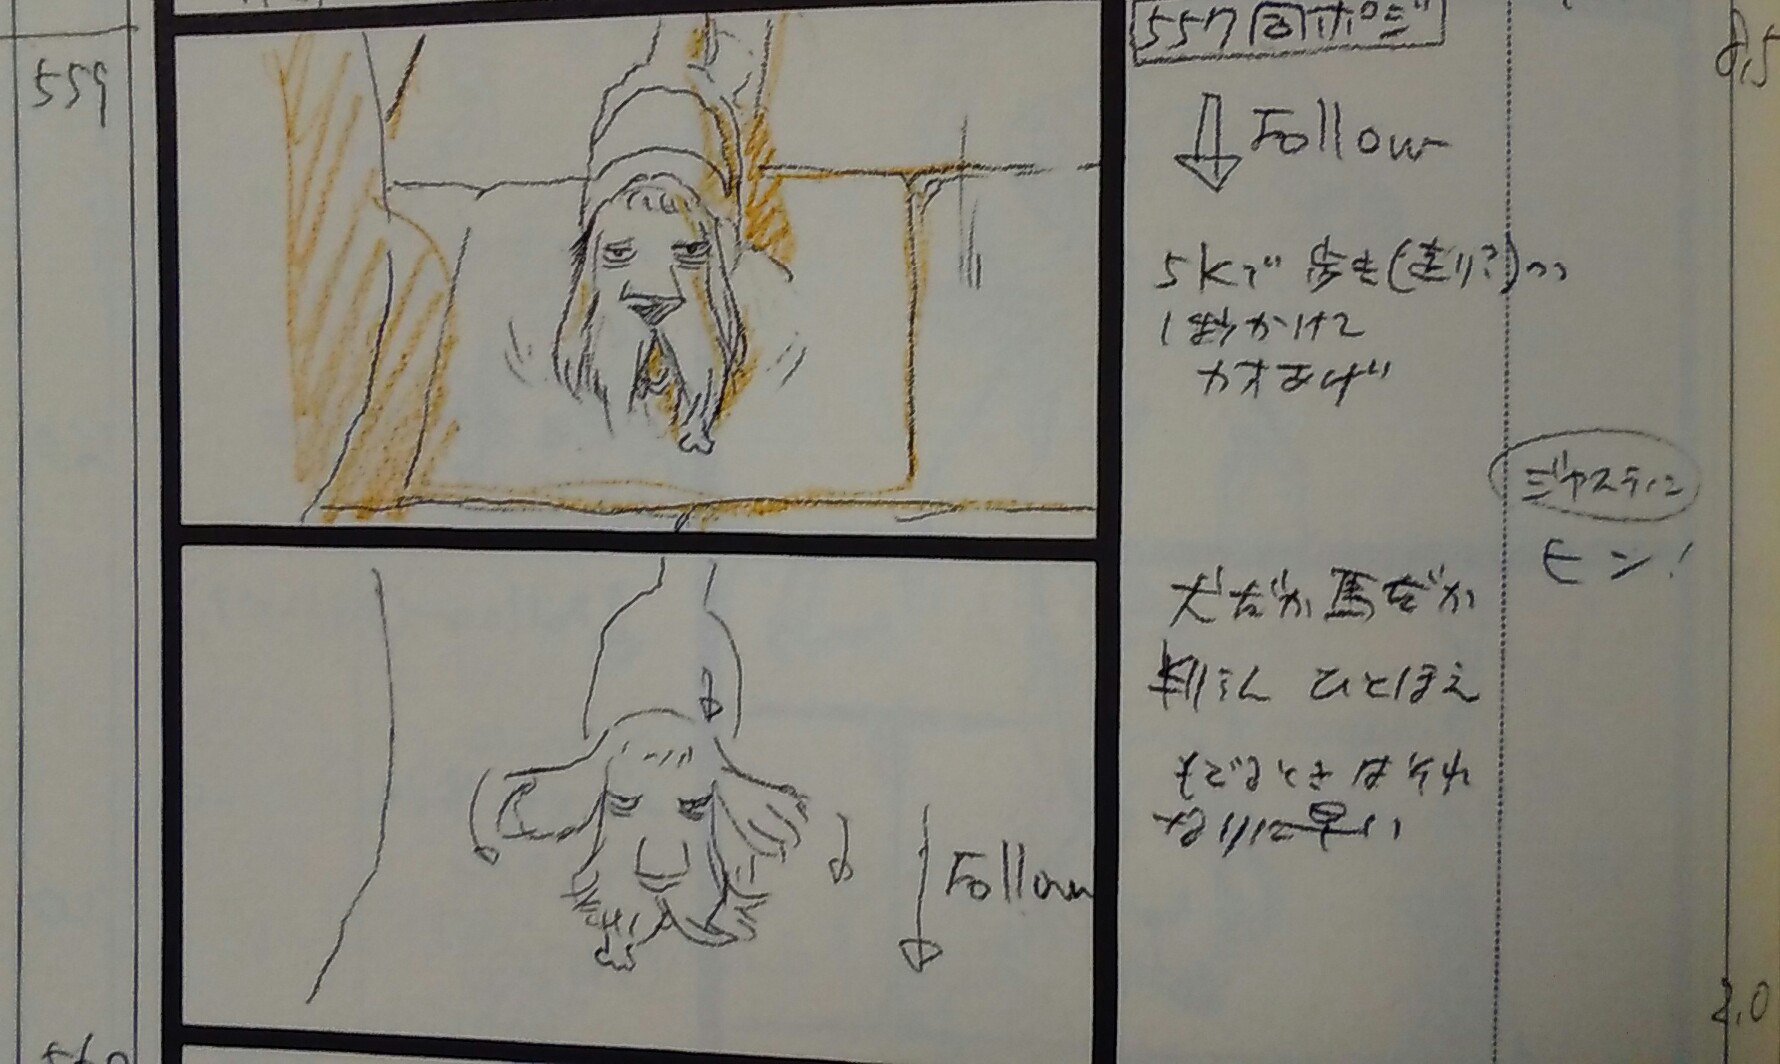 559
557同ポジ
Follow
5Kで歩き(走り?)つつ
カオあげ
ジャスティン
ヒン!
犬だか馬だか
ひとほえ
もどるときはそれ
なりに早い
Follow
8.5
2.0
560